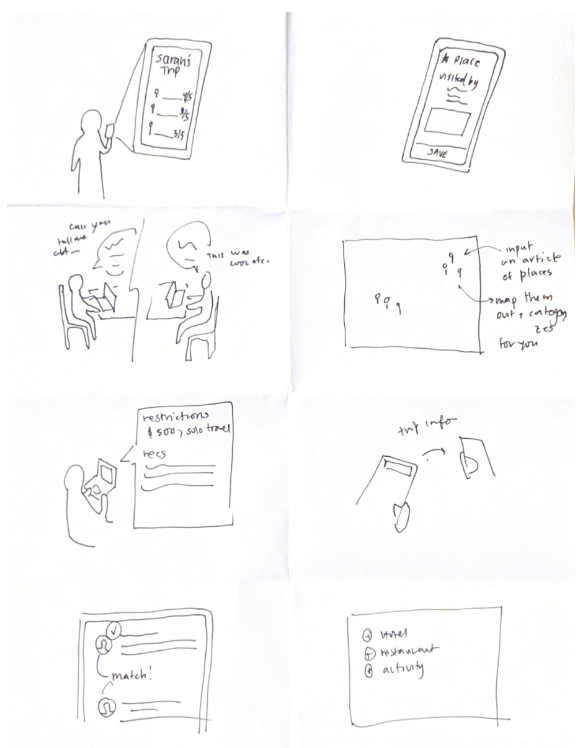 Sarah's
Trip
4/5
3/5
5/5
A Place
visited by
SAVE
can you
tell me
abt
This was
cool etc.
input
an article
of places
map them
out + categori
zes
for you
restrictions
$500, solo travel
recs
trip info
match!
hotel
+ restaurant
+ activity